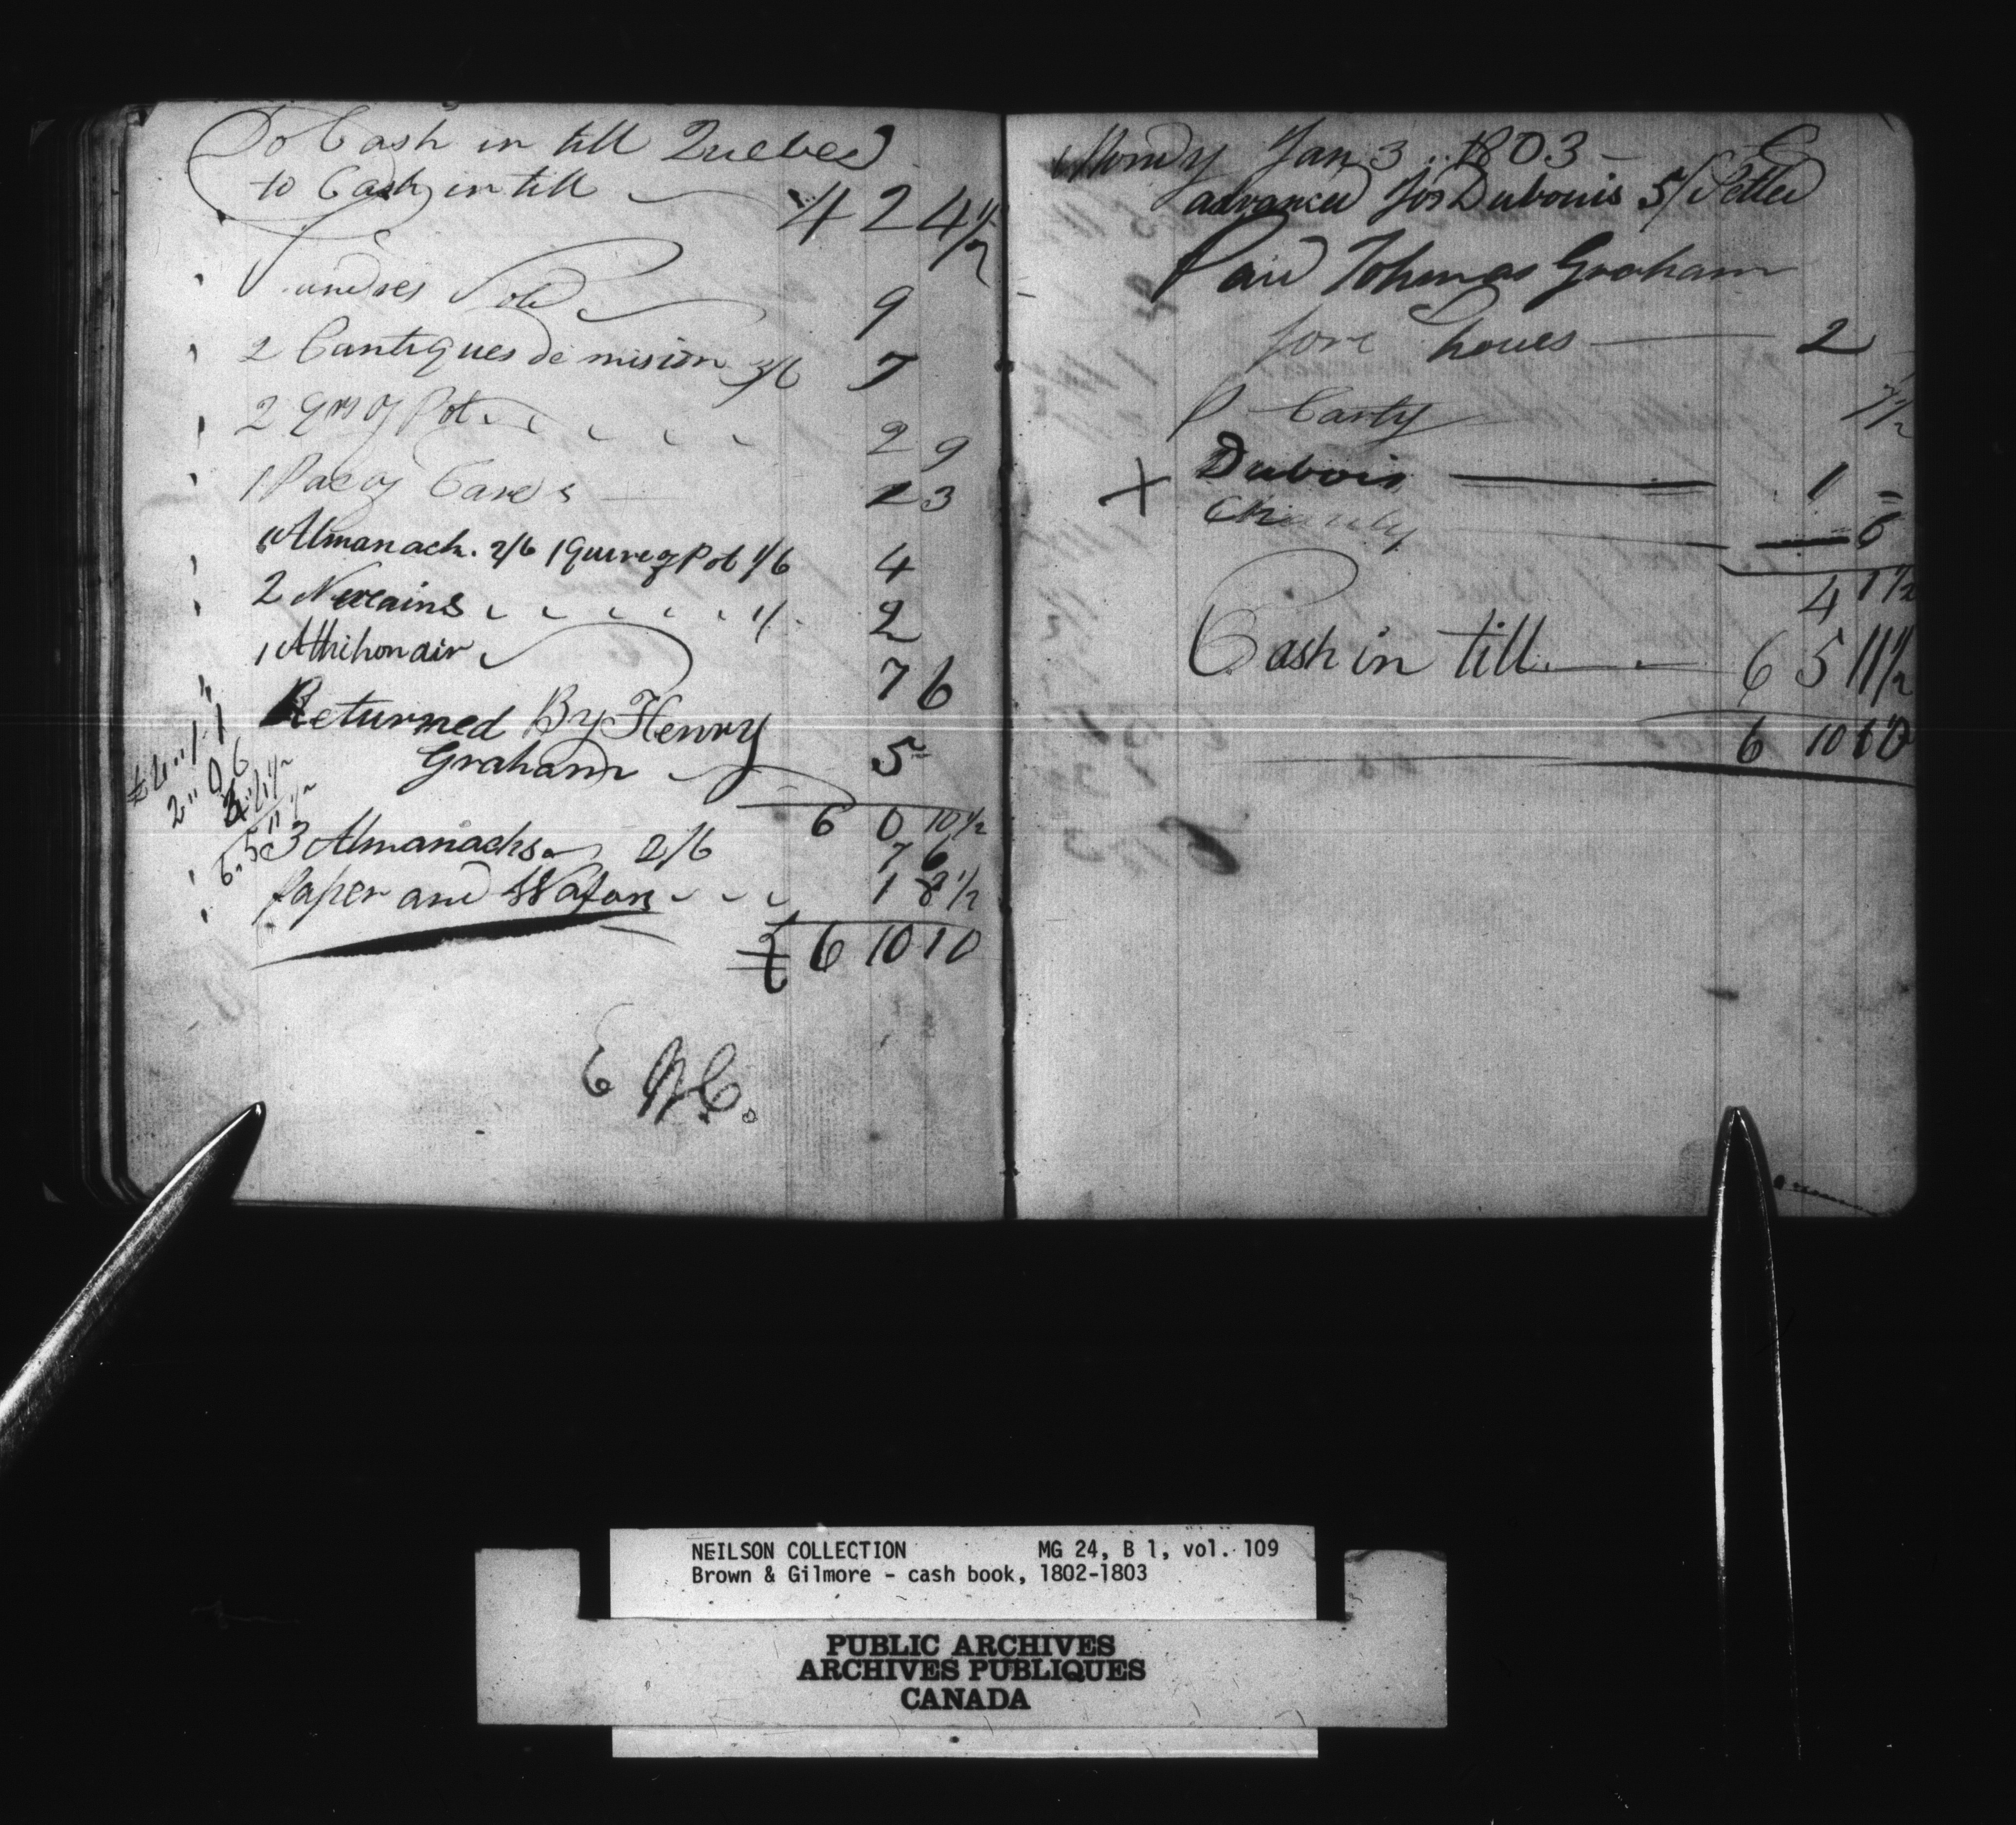 To Cash in till Quebec
to Cash in till 4 2 4 1/2
Sundres Sold 9
2 Cantiques de mision 3/6 7
2 qrs of Pot 2 9
1 Pac of Cards 2 3
1 Almanach. 2/6 1 Quire of Pot 1/6 4
2 Nuvains 1/ 2
1 7 6
Returned By Henry
Graham 5
6 0 10 1/2
3 Almanachs 2/6 7 6
Paper and Wafors 1 8 1/2
£ 6 10 10
£ 4 " 1 " 1
2 " 0 6
3 " 4 1/2
6 " 5 " 11 1/2
Mondy Jan 3 .. 1803
advanced for Dubouis 5/
Paid Tohmas Graham
fore 2
P Carty 7 1/2
X Dubois 1 =
6
4 1 1/2
Cash in till 6 5 11 1/2
6 10 10
NEILSON COLLECTION MG 24, B 1, vol. 109
Brown & Gilmore - cash book, 1802-1803
PUBLIC ARCHIVES
ARCHIVES PUBLIQUES
CANADA